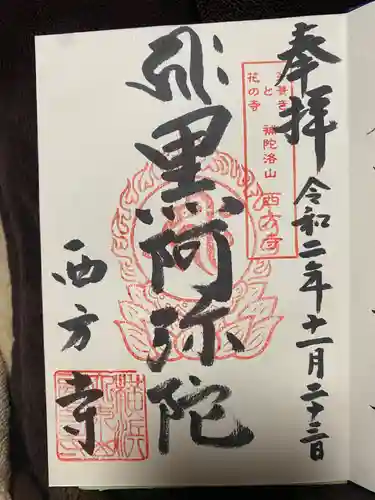 奉拝
令和二年十一月二十三日
と
花の寺
補陀洛山 西方寺
黒阿弥陀
西方寺